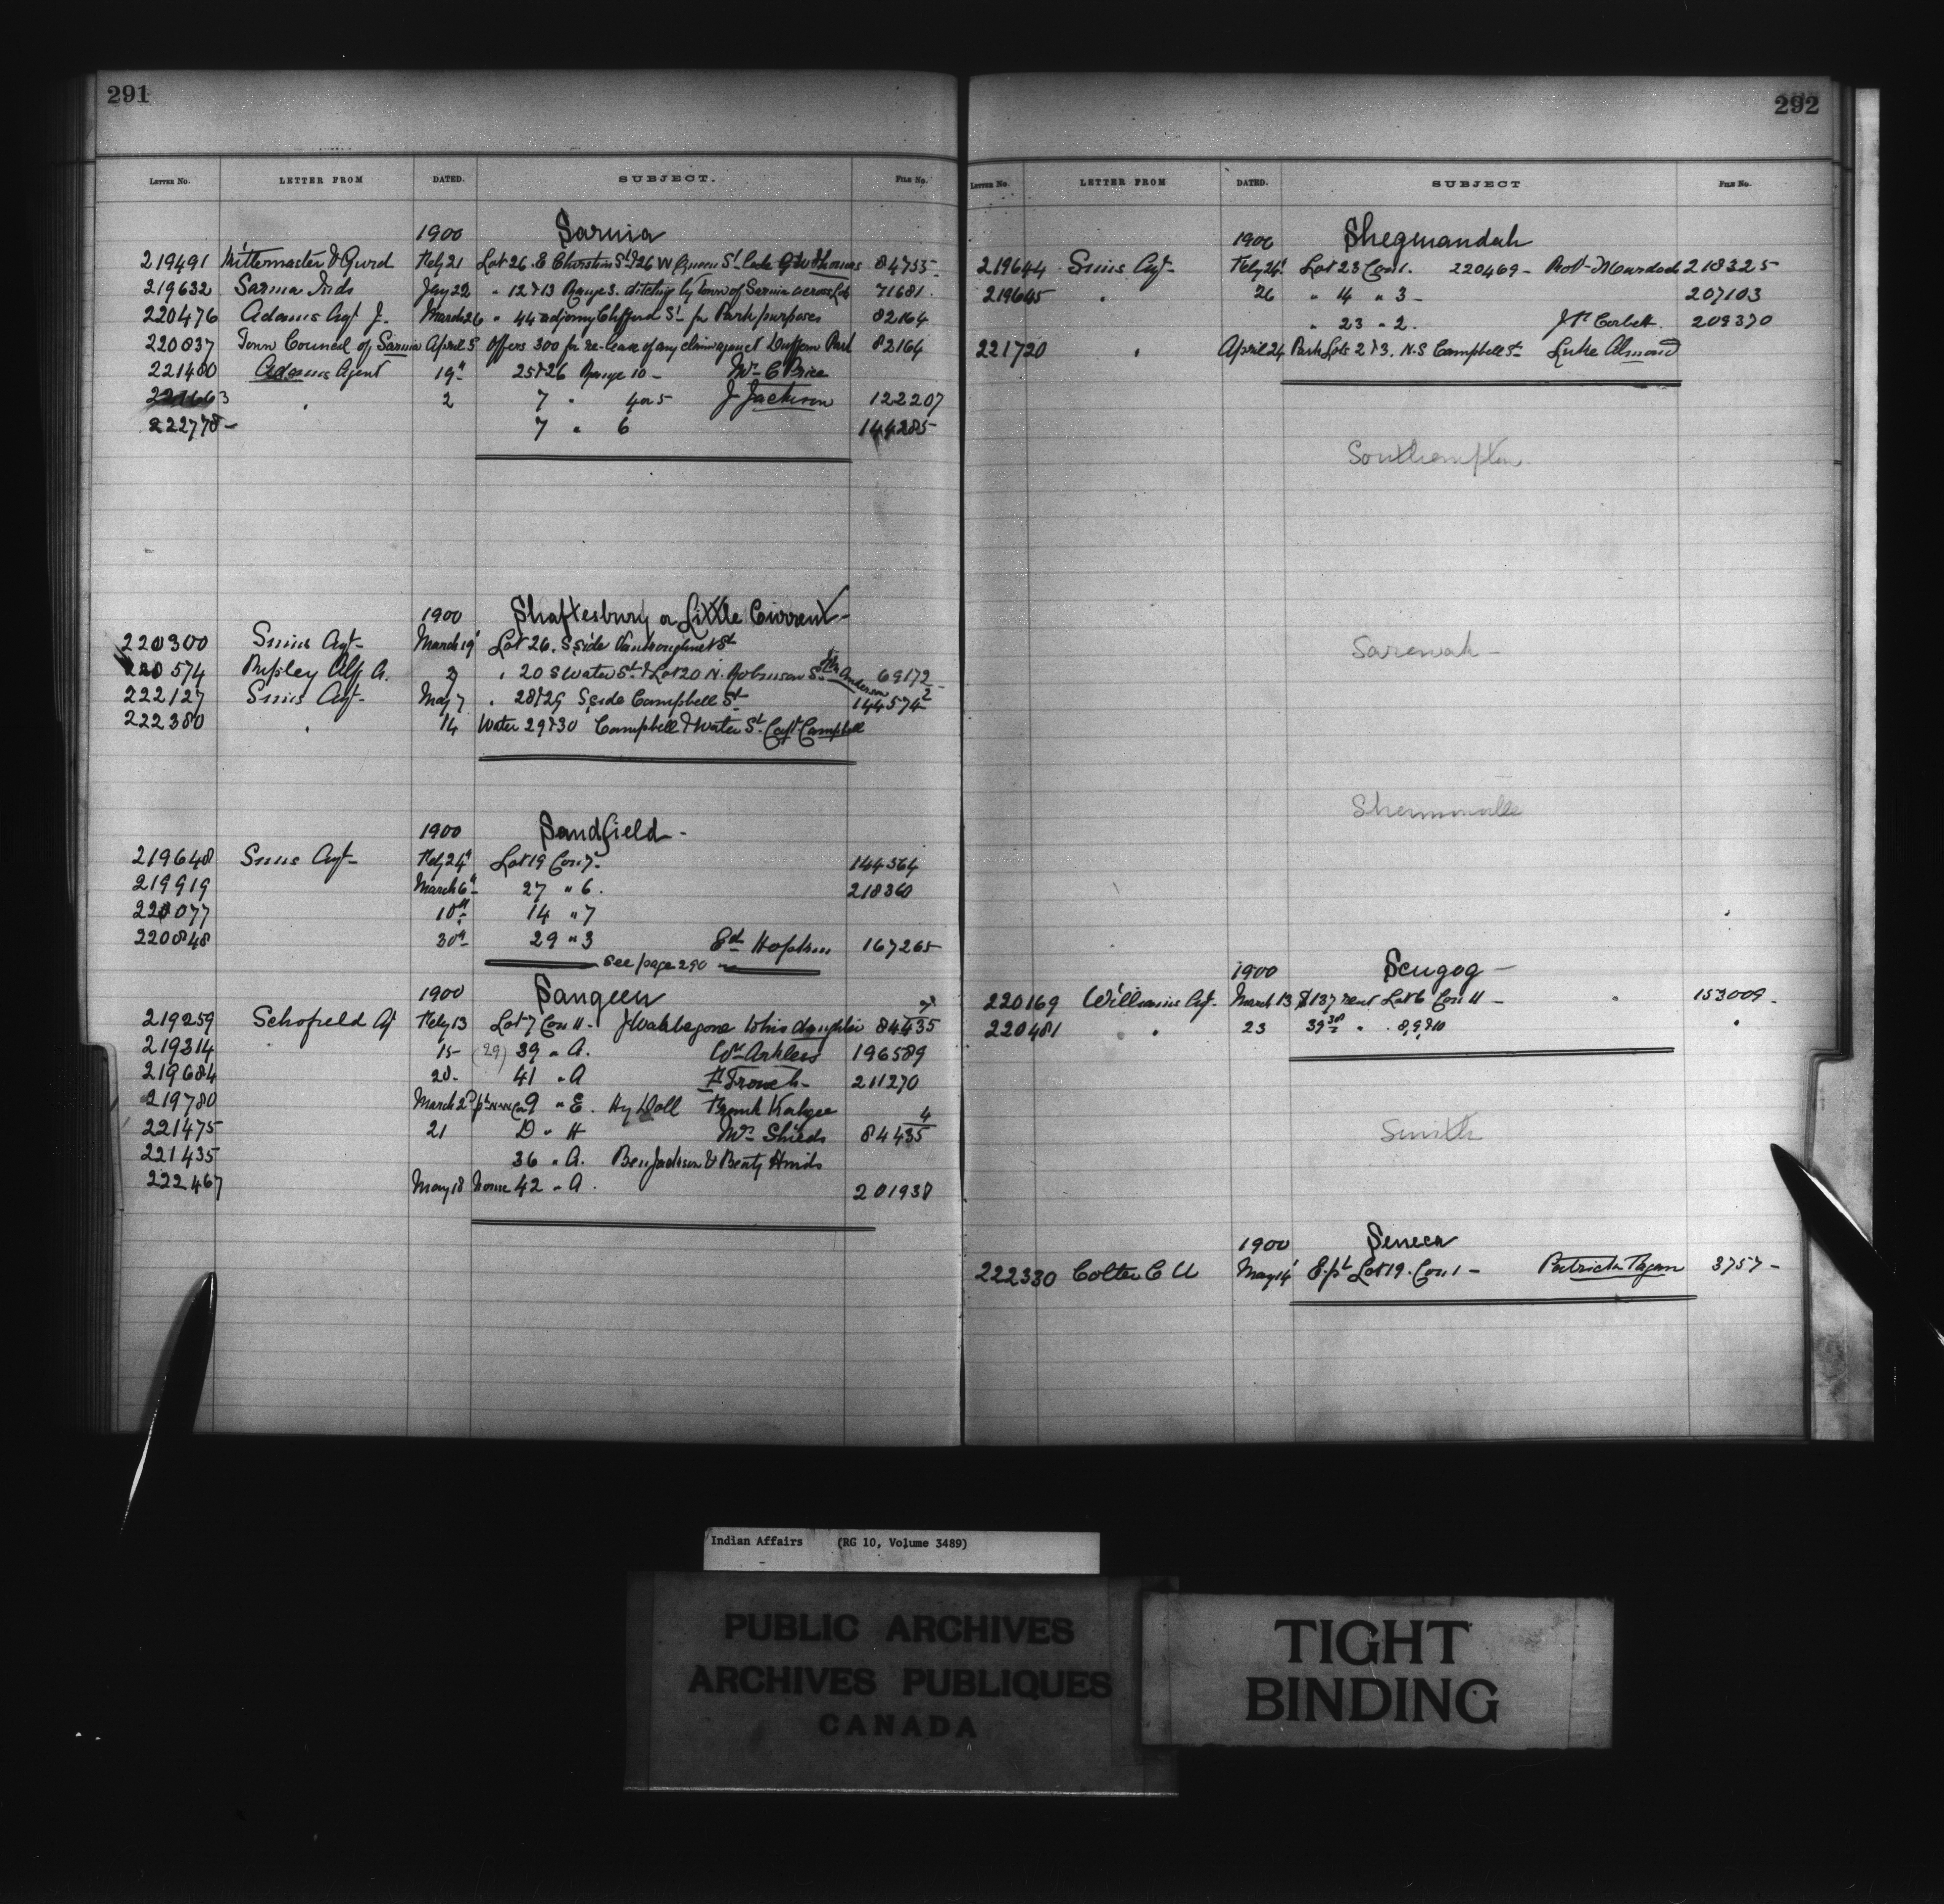 291
LETTER No. LETTER FROM DATED. SUBJECT. FILE No.
1900 Sarnia
219491 Kittermaster & Gurd Feby 21 Lot 26. E Christina St & 26 W Queen St G W Thomas 84755
219632 Sarnia Inds Jany 22 " 12 & 13 Range 3. ditching by town of Sarnia across Lots 71681.
220476 Adams Agt J. March 26 " 44 adjoing Clifford St for Park purposes 82164
220837 Town Council of Sarnia April 5 Offers 300 for re-lease of any claim against Dufferin Park 82164
221480 Adams Agent 19th 25 & 26 Range 10 - Mrs C Price
221663 " 2 7 " 4 or 5 J Jackson 122207
222778 - 7 " 6 144285
1900 Shaftesbury or Little Current
220300 Sims Agt - March 19 Lot 26. S side Vankoughnet St
220574 Ripley Alf A. 2 " 20 S Water St & Lot 20 N. Robinson St Anderson 69172
222127 Sims Agt - May 7 " 28 & 29 S side Campbell St 144574 2
222380 " 14 Water 29 & 30 Campbell & Water St Capt Campbell
1900 Sandfield -
219648 Sims Agt - Feby 24th Lot 19 Con 7 - 144364
219919 March 6th 27 " 6. 218360
220077 10th 14 " 7
220848 30th 29 " 3 Ed Hopkins 167265
see page 290
1900 Saugeen
219259 Schofield Agt Feby 13 Lot 7 Con 11 - J Wahbegone & his daughter 84435
219314 " 15 - (29) 39 " A. Wm Arkless 196589
219684 20. 41 " A 211270
219780 March 2 9 " E. Hy Doll Frank Kahgee
221475 21 D " H Mrs Shields 84435 4
221435 36 " A. Ben Jackson &
222467 May 18 42 " A. 201938
292
LETTER No. LETTER FROM DATED. SUBJECT FILE No.
1900 Sheguiandah
219644 Sims Agt - Feby 24 Lot 23 Con 1. 220469 - Robt Murdoch 218325
219645 " 26 " 14 " 3 - 207103
" 23 " 2. Corbett. 209370
221720 " April 24 Park Lots 2 & 3. N.S Campbell St - Luke Almond
Southampton
Sarawak -
1900 Scugog -
220169 Williams Agt - March 13 $137 rent Lot 6 Con 11 - " 153009.
220481 " 23 39 " " 8, 9 & 10 "
Smith
1900 Seneca
222330 Colter C U May 14 E. pt Lot 19. Con 1 - Patrick Fagan 3757 -
Indian Affairs (RG 10, Volume 3489)
PUBLIC ARCHIVES
ARCHIVES PUBLIQUES
CANADA
TIGHT
BINDING